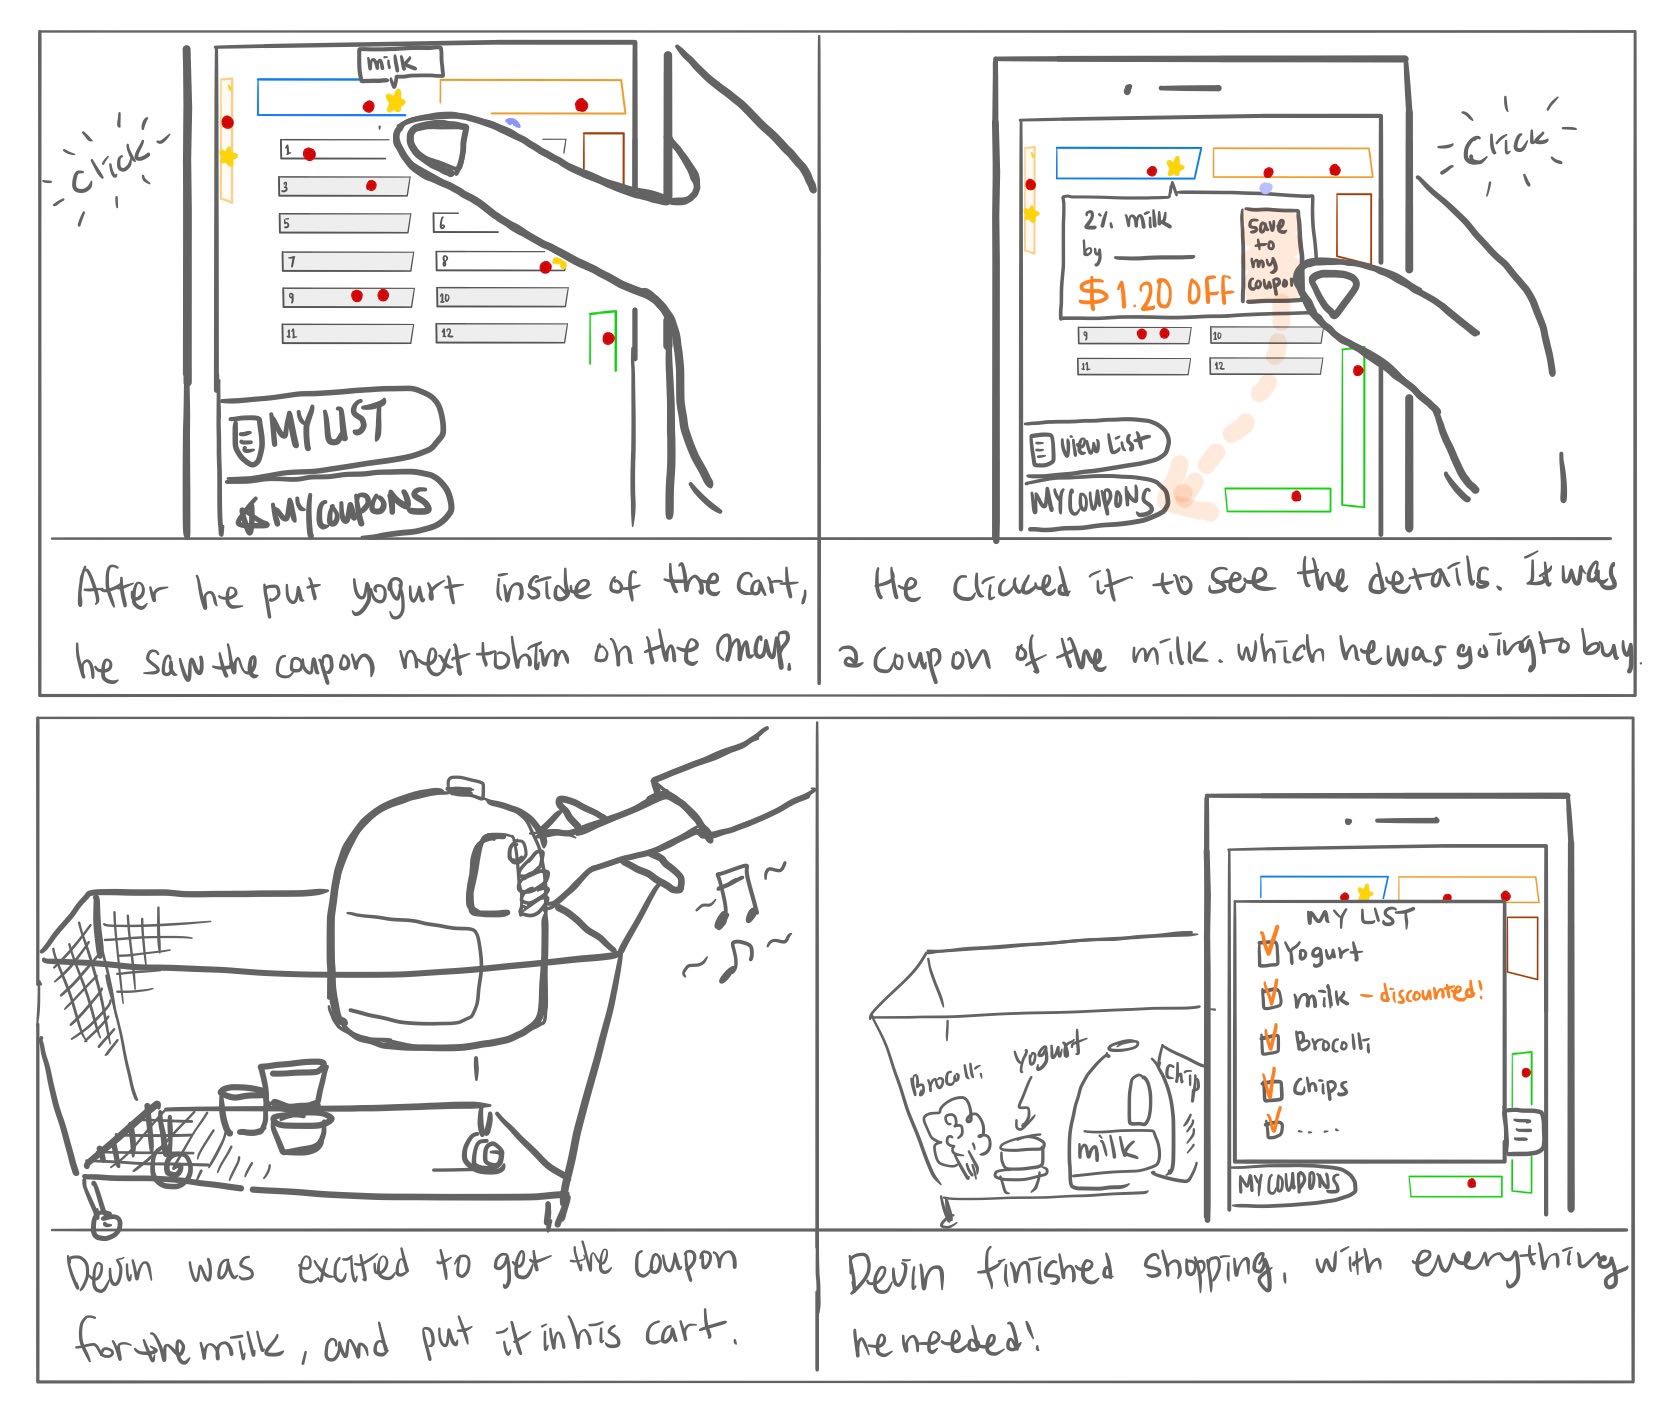 milk
click
1
3
5
6
7
8
9
10
11
12
MY LIST
MY COUPONS
After he put yogurt inside of the cart,
he saw the coupon next to him on the map.
click
2% milk
by
$1.20 OFF
save
to
my
coupon
9
10
11
12
view List
MY COUPONS
He clicked it to see the details. It was
a coupon of the milk. which he was going to buy.
Devin was excited to get the coupon
for the milk, and put it in his cart.
MY LIST
Yogurt
milk - discounted!
Brocolli
Chips
.....
MY COUPONS
Brocolli
Yogurt
milk
Chip
Devin finished shopping, with everything
he needed!